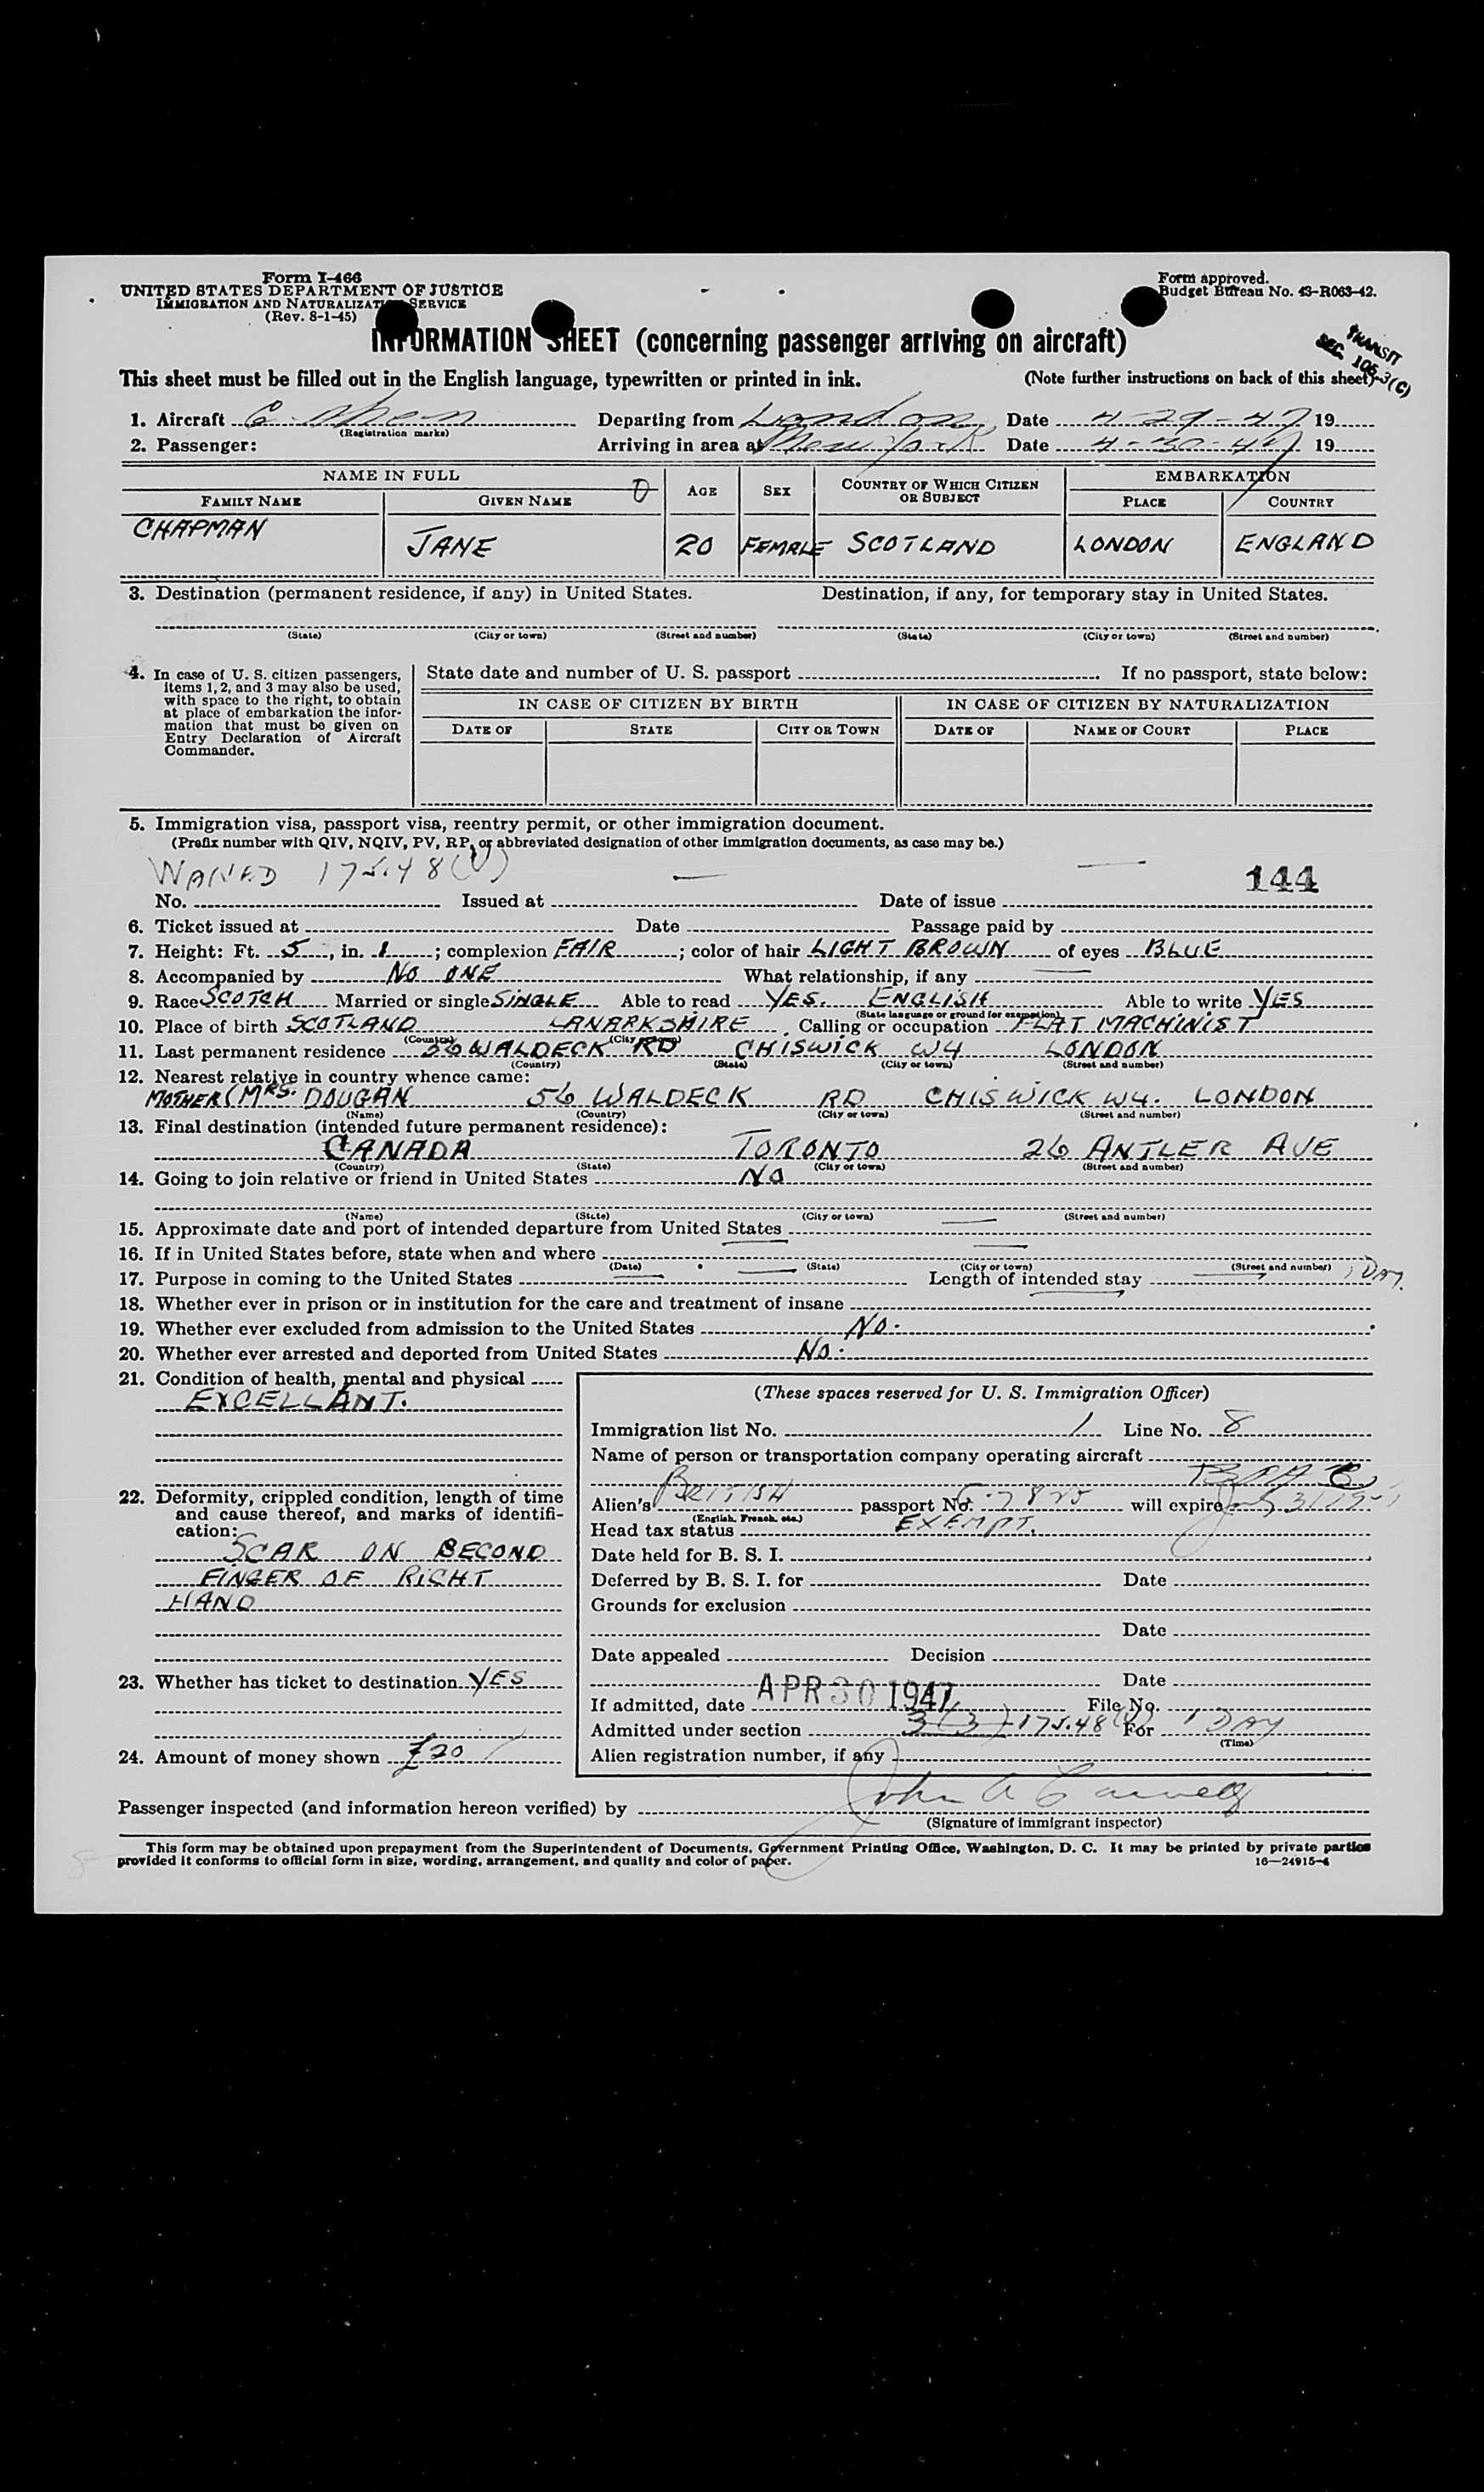 Form I-466
UNITED STATES DEPARTMENT OF JUSTICE
IMMIGRATION AND NATURALIZATION SERVICE
(Rev. 8-1-45)
Form approved.
Budget Bureau No. 43-R063-42.
INFORMATION SHEET (concerning passenger arriving on aircraft)
TRANSIT
SEC. 105-3(C)
This sheet must be filled out in the English language, typewritten or printed in ink. (Note further instructions on back of this sheet)
1. Aircraft Departing from London, Date 4-29-47 19
(Registration marks)
2. Passenger: Arriving in area at New York Date 4-30-47 19
NAME IN FULL AGE SEX COUNTRY OF WHICH CITIZEN OR SUBJECT EMBARKATION
FAMILY NAME GIVEN NAME PLACE COUNTRY
CHAPMAN JANE 20 FEMALE SCOTLAND LONDON ENGLAND
3. Destination (permanent residence, if any) in United States. Destination, if any, for temporary stay in United States.
(State) (City or town) (Street and number) (State) (City or town) (Street and number)
4. In case of U. S. citizen passengers, items 1, 2, and 3 may also be used, with space to the right, to obtain at place of embarkation the information that must be given on Entry Declaration of Aircraft Commander.
State date and number of U. S. passport If no passport, state below:
IN CASE OF CITIZEN BY BIRTH IN CASE OF CITIZEN BY NATURALIZATION
DATE OF STATE CITY OR TOWN DATE OF NAME OF COURT PLACE
5. Immigration visa, passport visa, reentry permit, or other immigration document.
(Prefix number with QIV, NQIV, PV, RP, or abbreviated designation of other immigration documents, as case may be.)
WAIVED 175.48(V) — — 144
No. Issued at Date of issue
6. Ticket issued at Date Passage paid by
7. Height: Ft. 5, in. 1; complexion FAIR; color of hair LIGHT BROWN of eyes BLUE
8. Accompanied by NO ONE What relationship, if any —
9. Race SCOTCH Married or single SINGLE Able to read YES. ENGLISH Able to write YES
(State language or ground for exemption)
10. Place of birth SCOTLAND LANARKSHIRE Calling or occupation FLAT MACHINIST
(Country) (City or town)
11. Last permanent residence 56 WALDECK RD CHISWICK W4 LONDON
(Country) (State) (City or town) (Street and number)
12. Nearest relative in country whence came:
MOTHER (MRS. DOUGAN 56 WALDECK RD CHISWICK W4. LONDON
(Name) (Country) (City or town) (Street and number)
13. Final destination (intended future permanent residence):
CANADA TORONTO 26 ANTLER AVE
(Country) (State) (City or town) (Street and number)
14. Going to join relative or friend in United States NO
(Name) (State) (City or town) (Street and number)
15. Approximate date and port of intended departure from United States —
16. If in United States before, state when and where —
(Date) (State) (City or town) (Street and number)
17. Purpose in coming to the United States — Length of intended stay 1 DAY.
18. Whether ever in prison or in institution for the care and treatment of insane
19. Whether ever excluded from admission to the United States NO.
20. Whether ever arrested and deported from United States NO.
21. Condition of health, mental and physical
EXCELLANT.
22. Deformity, crippled condition, length of time and cause thereof, and marks of identification:
SCAR ON SECOND
FINGER OF RIGHT
HAND
23. Whether has ticket to destination YES
24. Amount of money shown £20
(These spaces reserved for U. S. Immigration Officer)
Immigration list No. 1 Line No. 8
Name of person or transportation company operating aircraft
Alien's BRITISH passport No. will expire
(English, French, etc.)
Head tax status EXEMPT.
Date held for B. S. I.
Deferred by B. S. I. for Date
Grounds for exclusion
Date
Date appealed Decision
Date
If admitted, date APR 30 1947 File No.
Admitted under section 3(3) 175.48(V) For 1 DAY
(Time)
Alien registration number, if any
Passenger inspected (and information hereon verified) by John A
(Signature of immigrant inspector)
This form may be obtained upon prepayment from the Superintendent of Documents, Government Printing Office, Washington, D. C. It may be printed by private parties
provided it conforms to official form in size, wording, arrangement, and quality and color of paper. 16—24915-4